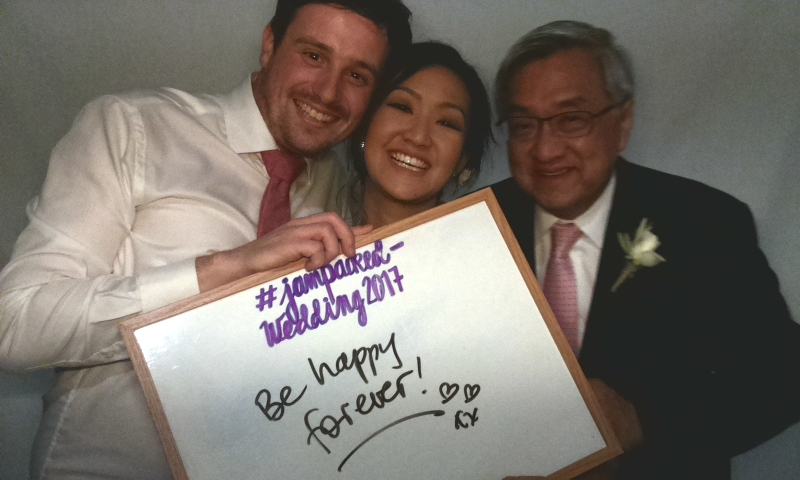 #jampacked-
Wedding2017
Be happy
forever!
xx